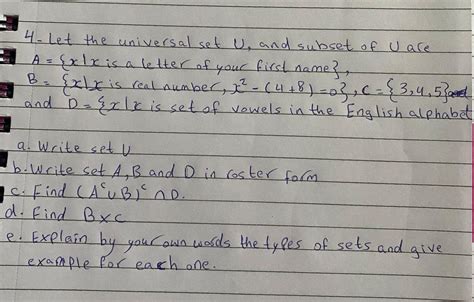 4- Let the universal set U, and subset of U are
A = {x|x is a letter of your first name},
B = {x|x is real number, x² - (4+8) = 0}, C = {3,4,5} and
and D = {x|x is set of vowels in the English alphabet
a. Write set U
b. Write set A, B and D in roster form
c. Find (Aᶜ∪B)ᶜ ∩ D.
d. Find B×C
e. Explain by your own words the types of sets and give
example for each one.